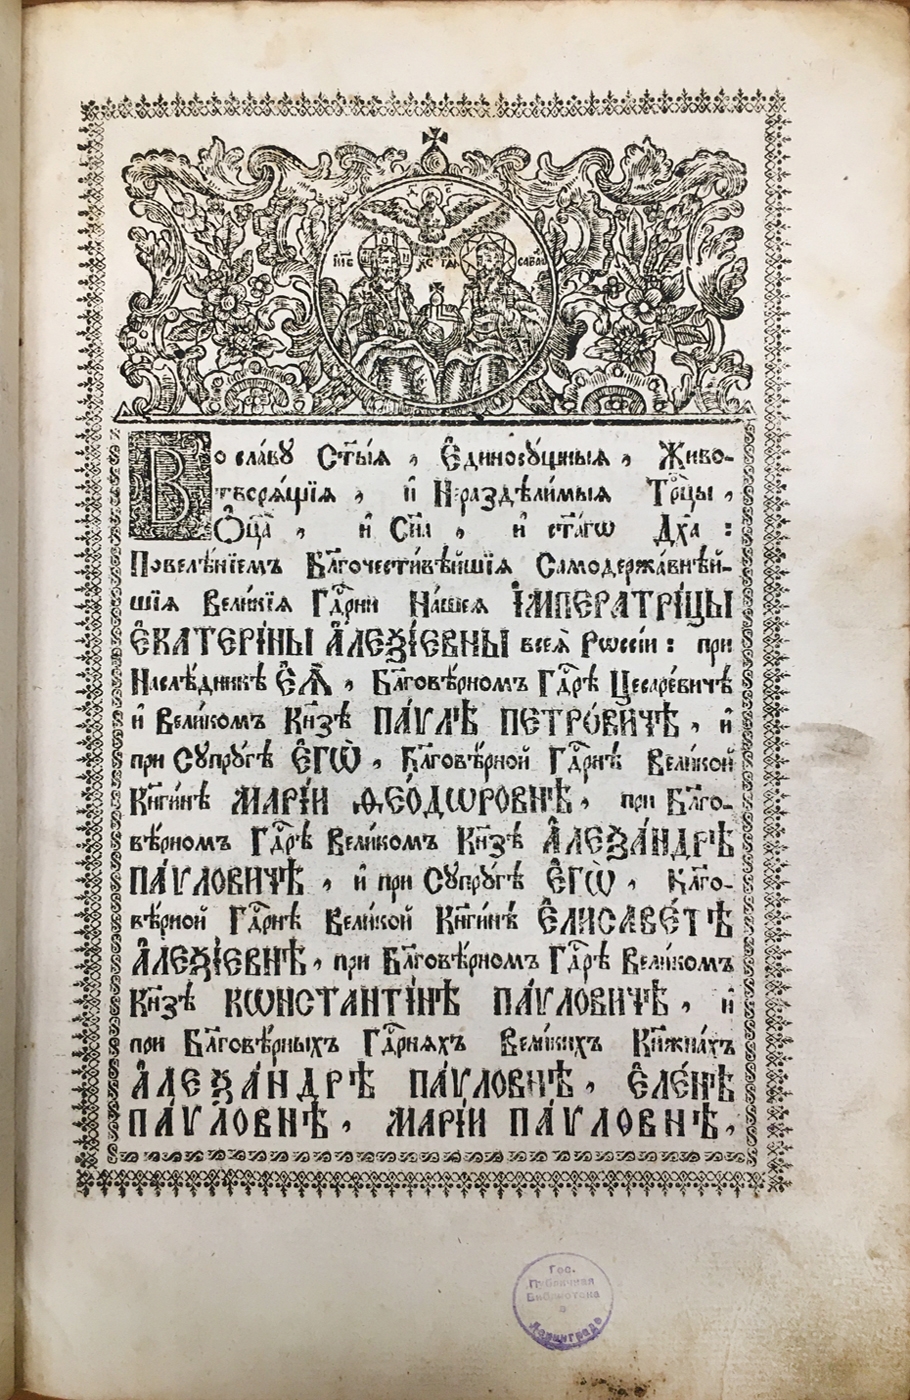 ІИС ХС ГДЬ САВАО
Во сла́ву Ст҃ы́ѧ , Є҆диносꙋ́щныѧ , Живо-
творѧ́щїѧ , и҆ Нераздѣли́мыѧ Трⷪ҇цы ,
Ѻ҆ц҃а̀ , и҆ Сн҃а , и҆ ст҃а́гѡ Дх҃а :
Повелѣ́нїемъ Бл҃гочести́вѣйшїѧ Самодержа́внѣй-
шїѧ Вели́кїѧ Гдⷭ҇рни На́шеѧ І҆МПЕРАТРІ́ЦЫ
Є҆КАТЕРІ́НЫ А҆ЛЕѮІ́ЕВНЫ всеѧ̀ Рѡссі́и : при
Наслѣ́дникѣ Є҆Ѧ̀ , Бл҃говѣ́рномъ Гдⷭ҇рѣ Цесаре́вичѣ
и҆ Вели́комъ Кн҃зѣ ПА́ѴЛѢ ПЕТРО́ВИЧѢ , и҆
при Сꙋпрꙋ́гѣ Є҆ГѠ̀ , Бл҃говѣ́рной Гдⷭ҇рнѣ Вели́кой
Кнг҃и́нѣ МАРІ́И ѲЕО́ДѠРОВНѢ , при Бл҃го-
вѣ́рномъ Гдⷭ҇рѣ Вели́комъ Кн҃зѣ А҆ЛЕѮА́НДРѢ
ПА́ѴЛОВИЧѢ , и҆ при Сꙋпрꙋ́гѣ Є҆ГѠ̀ , Бл҃го-
вѣ́рной Гдⷭ҇рнѣ Вели́кой Кнг҃и́нѣ Є҆ЛИСАВЕ́ТѢ
А҆ЛЕѮІ́ЕВНѢ , при Бл҃говѣ́рномъ Гдⷭ҇рѣ Вели́комъ
Кн҃зѣ КѠНСТАНТІ́НѢ ПА́ѴЛОВИЧѢ , и҆
при Бл҃говѣ́рныхъ Гдⷭ҇рнѧхъ Вели́кихъ Кн҃жна́хъ
А҆ЛЕѮА́НДРѢ ПА́ѴЛОВНѢ , Є҆ЛЕ́НѢ
ПА́ѴЛОВНѢ , МАРІ́И ПА́ѴЛОВНѢ ,
Гос.
Публичная
Библиотека
в
Ленинграде